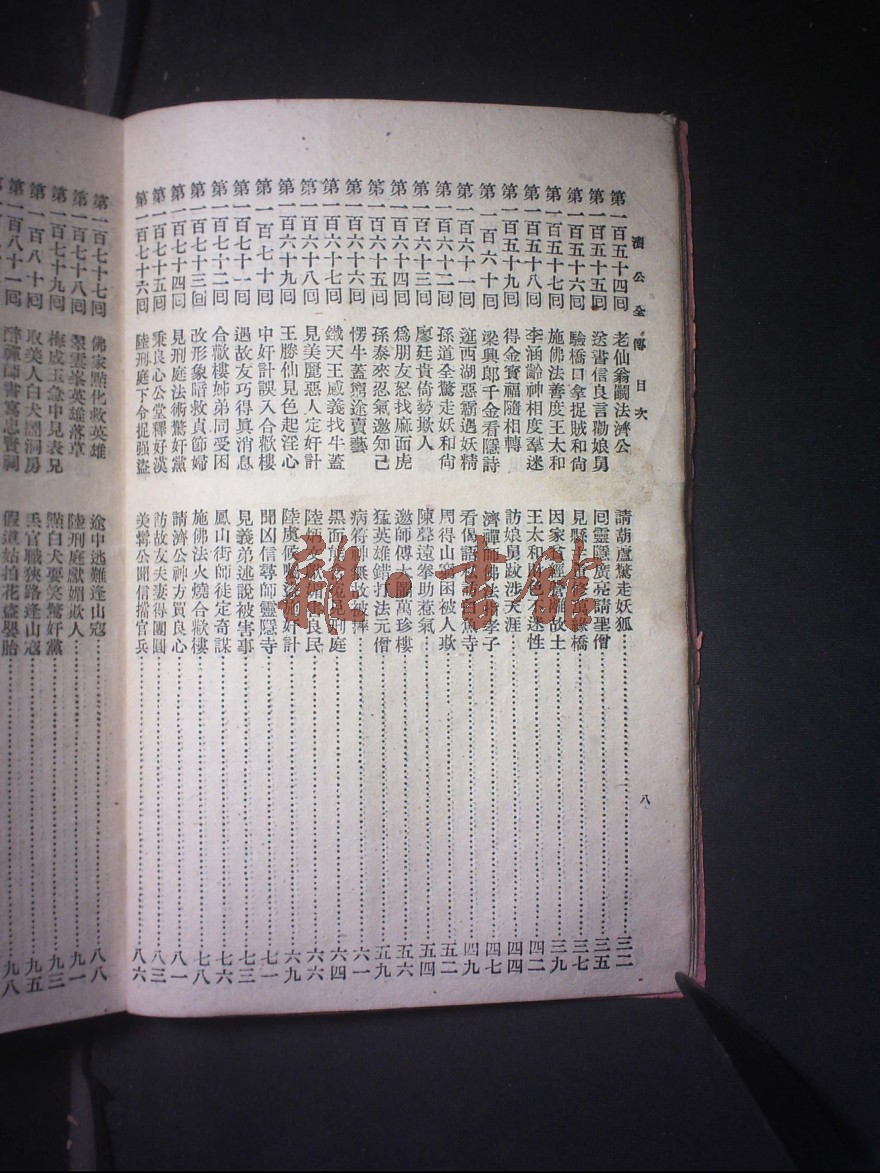 濟公全傳 目次 八
第一百五十四回 老仙翁鬭法濟公 請葫蘆驚走妖狐 三二
第一百五十五回 送書信良言勸娘舅 回靈隱廣亮請聖僧 三五
第一百五十六回 驗橋口拿捉賊和尚 見縣 修萬緣橋 三七
第一百五十七回 施佛法善度王太和 因家 經營離故土 三九
第一百五十八回 李涵齡神相度羣迷 王太和財色不迷性 四二
第一百五十九回 得金寶福隨相轉 訪娘舅跋涉天涯 四四
第一百六十回 梁興郎千金看隱詩 濟禪師佛法 孝子 四七
第一百六十一回 逛西湖惡霸遇妖精 看偈語 訪白魚寺 四九
第一百六十二回 孫道全驚走妖和尚 周得山 困被人欺 五二
第一百六十三回 廖廷貴倚勢欺人 陳聲遠拳助惹氣 五四
第一百六十四回 爲朋友怒找麻面虎 邀師傅大鬧萬珍樓 五六
第一百六十五回 孫泰來忍氣邀知己 猛英雄錯打法元僧 五九
第一百六十六回 愣牛蓋窮途賣藝 病符神無故被摔 六一
第一百六十七回 鐵天王感義找牛蓋 黑面 寃見刑庭 六四
第一百六十八回 見美麗惡人定奸計 陸炳文獻媚 良民 六六
第一百六十九回 王勝仙見色起淫心 陸虞候 盜施奸計 六九
第一百七十回 中奸計誤入合歡樓 聞凶信尋師靈隱寺 七一
第一百七十一回 遇故友巧得眞消息 見義弟述說被害事 七三
第一百七十二回 合歡樓姊弟同受困 鳳山街師徒定奇謀 七六
第一百七十三回 改形象暗救貞節婦 施佛法火燒合歡樓 七八
第一百七十四回 見刑庭法術驚奸黨 請濟公神方買良心 八一
第一百七十五回 秉良心公堂釋好漢 訪故友夫妻得團圓 八三
第一百七十六回 陸刑庭下令捉强盜 美髯公聞信擋官兵 八六
第一百七十七回 佛家點化救英雄 途中逃難逢山寇 八八
第一百七十八回 翠雲峯英雄落草 陸刑庭獻媚欺人 九一
第一百七十九回 梅成玉急中見表兄 點白犬耍笑驚奸黨 九三
第一百八十回 取美人白犬鬧洞房 丟官職狹路逢山寇 九五
第一百八十一回 醉禪師書寫忠賢祠 假道姑拍花盜嬰胎 九八